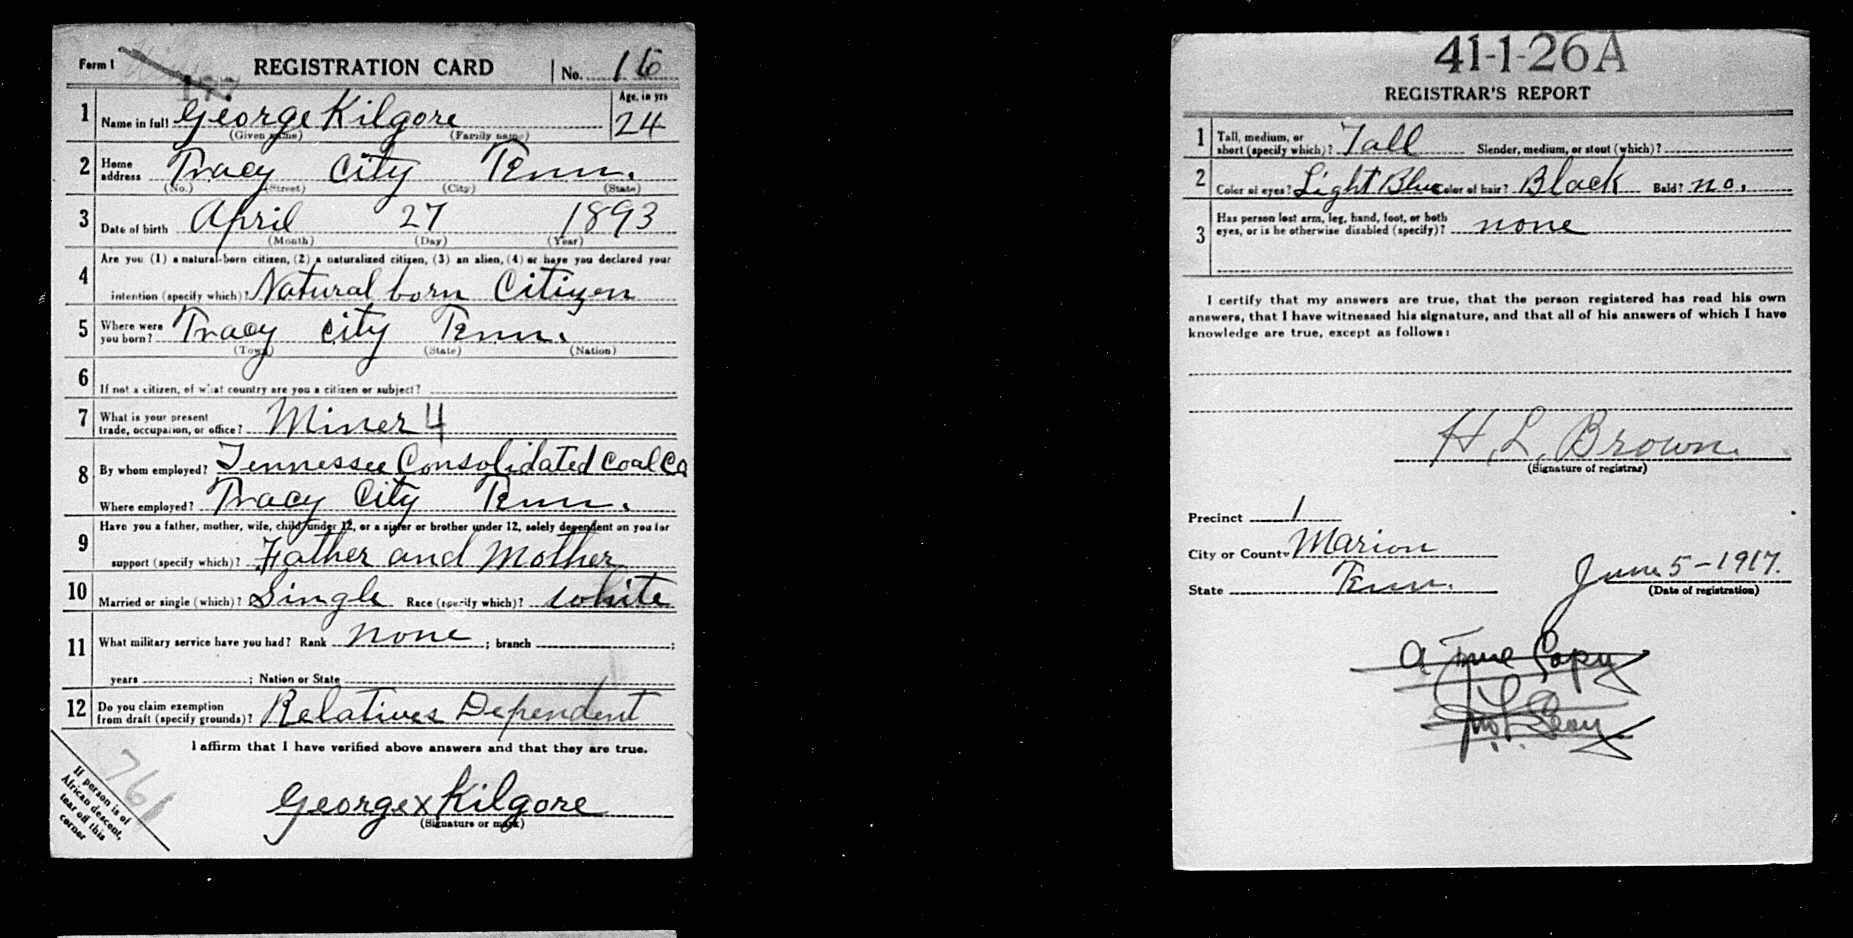 Form 1 REGISTRATION CARD No. 16
Age, in yrs
1 Name in full George Kilgore 24
(Given name) (Family name)
2 Home address Tracy City Tenn.
(No.) (Street) (City) (State)
3 Date of birth April 27 1893
(Month) (Day) (Year)
4 Are you (1) a natural-born citizen, (2) a naturalized citizen, (3) an alien, (4) or have you declared your
intention (specify which)? Natural born Citizen
5 Where were you born? Tracy City Tenn.
(Town) (State) (Nation)
6 If not a citizen, of what country are you a citizen or subject?
7 What is your present
trade, occupation, or office? Miner 4
8 By whom employed? Tennessee Consolidated Coal Co
Where employed? Tracy City Tenn.
9 Have you a father, mother, wife, child under 12, or a sister or brother under 12, solely dependent on you for
support (specify which)? Father and Mother
10 Married or single (which)? Single Race (specify which)? White
11 What military service have you had? Rank none ; branch ;
years ; Nation or State
12 Do you claim exemption
from draft (specify grounds)? Relatives Dependent
I affirm that I have verified above answers and that they are true.
761
If person is of
African descent,
tear off this
corner
George x Kilgore
(Signature or mark)
41-1-26A
REGISTRAR'S REPORT
1 Tall, medium, or
short (specify which)? Tall Slender, medium, or stout (which)?
2 Color of eyes? Light Blue Color of hair? Black Bald? no.
3 Has person lost arm, leg, hand, foot, or both
eyes, or is he otherwise disabled (specify)? none
I certify that my answers are true, that the person registered has read his own
answers, that I have witnessed his signature, and that all of his answers of which I have
knowledge are true, except as follows:
H. L. Brown.
(Signature of registrar)
Precinct 1
City or County Marion
State Tenn. June 5-1917.
(Date of registration)
A True Copy